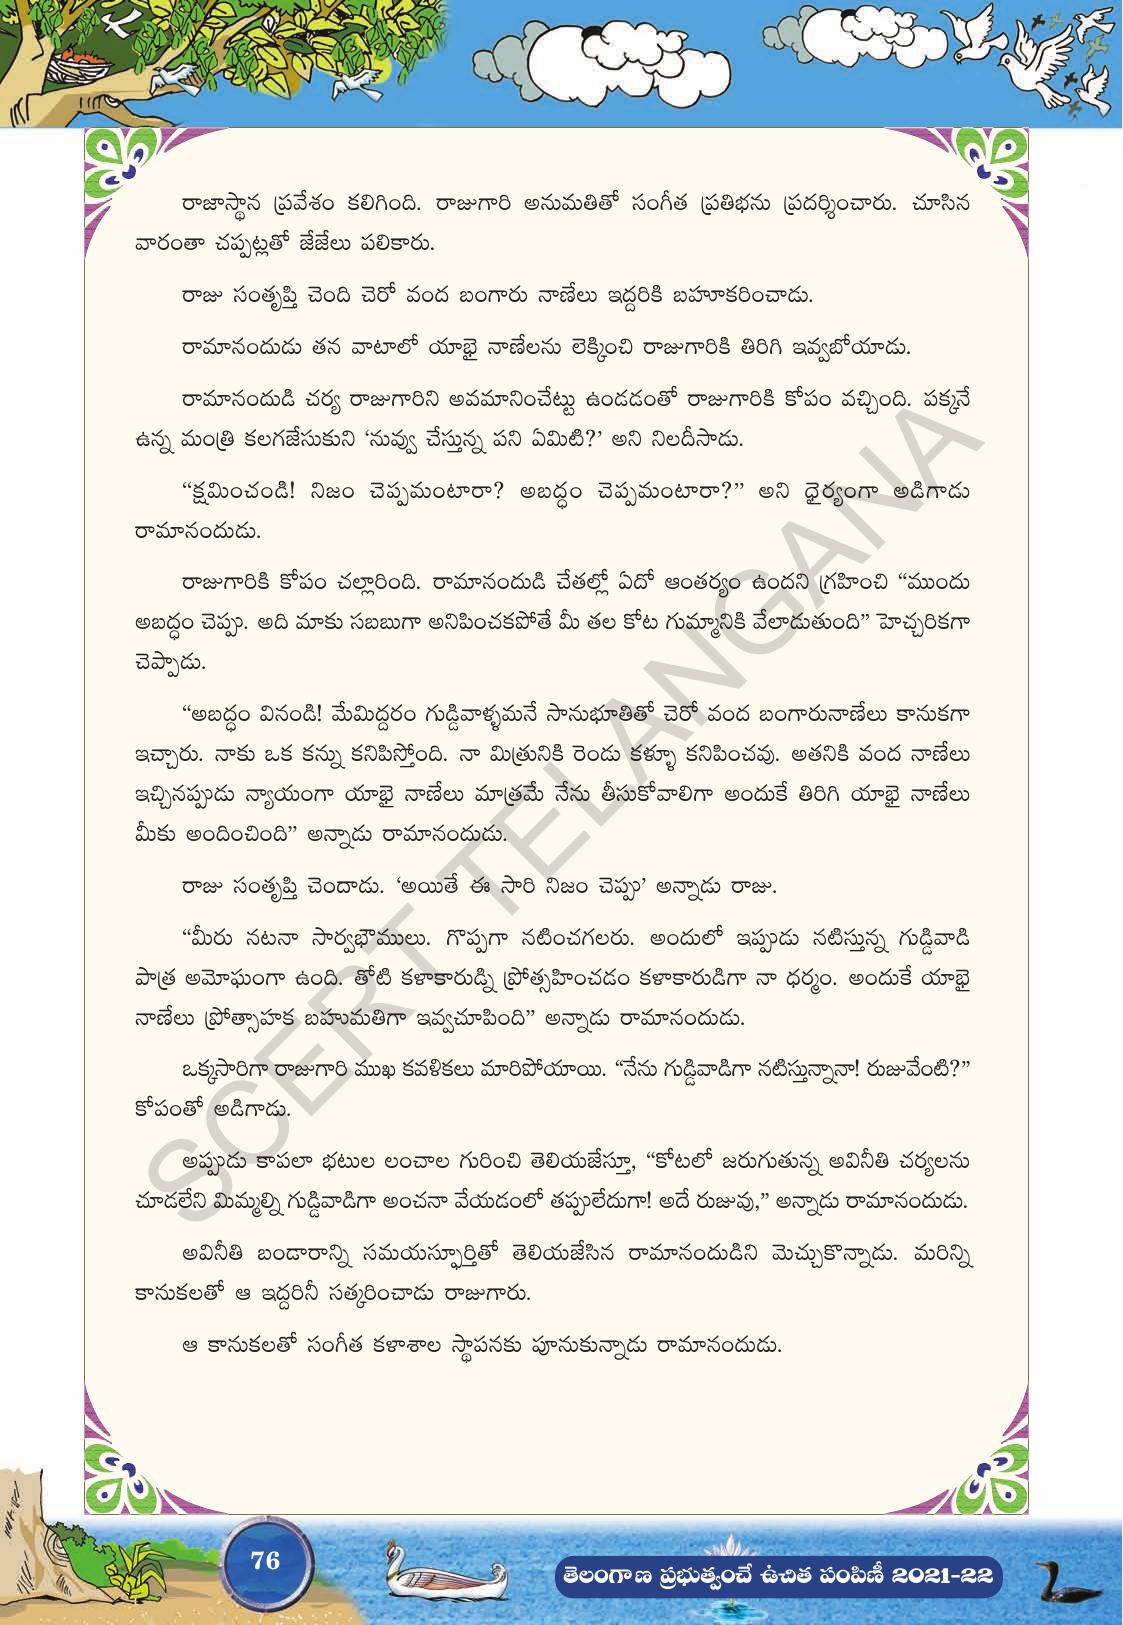 రాజాస్థాన ప్రవేశం కలిగింది. రాజుగారి అనుమతితో సంగీత ప్రతిభను ప్రదర్శించారు. చూసిన
వారంతా చప్పట్లతో జేజేలు పలికారు.
రాజు సంతృప్తి చెంది చెరో వంద బంగారు నాణేలు ఇద్దరికి బహూకరించాడు.
రామానందుడు తన వాటాలో యాభై నాణేలను లెక్కించి రాజుగారికి తిరిగి ఇవ్వబోయాడు.
రామానందుడి చర్య రాజుగారిని అవమానించేట్టు ఉండడంతో రాజుగారికి కోపం వచ్చింది. పక్కనే
ఉన్న మంత్రి కలగజేసుకుని ‘నువ్వు చేస్తున్న పని ఏమిటి?’ అని నిలదీసాడు.
“క్షమించండి! నిజం చెప్పమంటారా? అబద్ధం చెప్పమంటారా?” అని ధైర్యంగా అడిగాడు
రామానందుడు.
రాజుగారికి కోపం చల్లారింది. రామానందుడి చేతల్లో ఏదో ఆంతర్యం ఉందని గ్రహించి “ముందు
అబద్ధం చెప్పు. అది మాకు సబబుగా అనిపించకపోతే మీ తల కోట గుమ్మానికి వేలాడుతుంది” హెచ్చరికగా
చెప్పాడు.
“అబద్ధం వినండి! మేమిద్దరం గుడ్డివాళ్ళమనే సానుభూతితో చెరో వంద బంగారునాణేలు కానుకగా
ఇచ్చారు. నాకు ఒక కన్ను కనిపిస్తోంది. నా మిత్రునికి రెండు కళ్ళూ కనిపించవు. అతనికి వంద నాణేలు
ఇచ్చినప్పుడు న్యాయంగా యాభై నాణేలు మాత్రమే నేను తీసుకోవాలిగా అందుకే తిరిగి యాభై నాణేలు
మీకు అందించింది” అన్నాడు రామానందుడు.
రాజు సంతృప్తి చెందాడు. ‘అయితే ఈ సారి నిజం చెప్పు’ అన్నాడు రాజు.
“మీరు నటనా సార్వభౌములు. గొప్పగా నటించగలరు. అందులో ఇప్పుడు నటిస్తున్న గుడ్డివాడి
పాత్ర అమోఘంగా ఉంది. తోటి కళాకారుడ్ని ప్రోత్సహించడం కళాకారుడిగా నా ధర్మం. అందుకే యాభై
నాణేలు ప్రోత్సాహక బహుమతిగా ఇవ్వచూపింది” అన్నాడు రామానందుడు.
ఒక్కసారిగా రాజుగారి ముఖ కవళికలు మారిపోయాయి. “నేను గుడ్డివాడిగా నటిస్తున్నానా! రుజువేంటి?”
కోపంతో అడిగాడు.
అప్పుడు కాపలా భటుల లంచాల గురించి తెలియజేస్తూ, “కోటలో జరుగుతున్న అవినీతి చర్యలను
చూడలేని మిమ్మల్ని గుడ్డివాడిగా అంచనా వేయడంలో తప్పులేదుగా! అదే రుజువు,” అన్నాడు రామానందుడు.
అవినీతి బండారాన్ని సమయస్ఫూర్తితో తెలియజేసిన రామానందుడిని మెచ్చుకొన్నాడు. మరిన్ని
కానుకలతో ఆ ఇద్దరినీ సత్కరించాడు రాజుగారు.
ఆ కానుకలతో సంగీత కళాశాల స్థాపనకు పూనుకున్నాడు రామానందుడు.
SCERT TELANGANA
76
తెలంగాణ ప్రభుత్వంచే ఉచిత పంపిణీ 2021-22